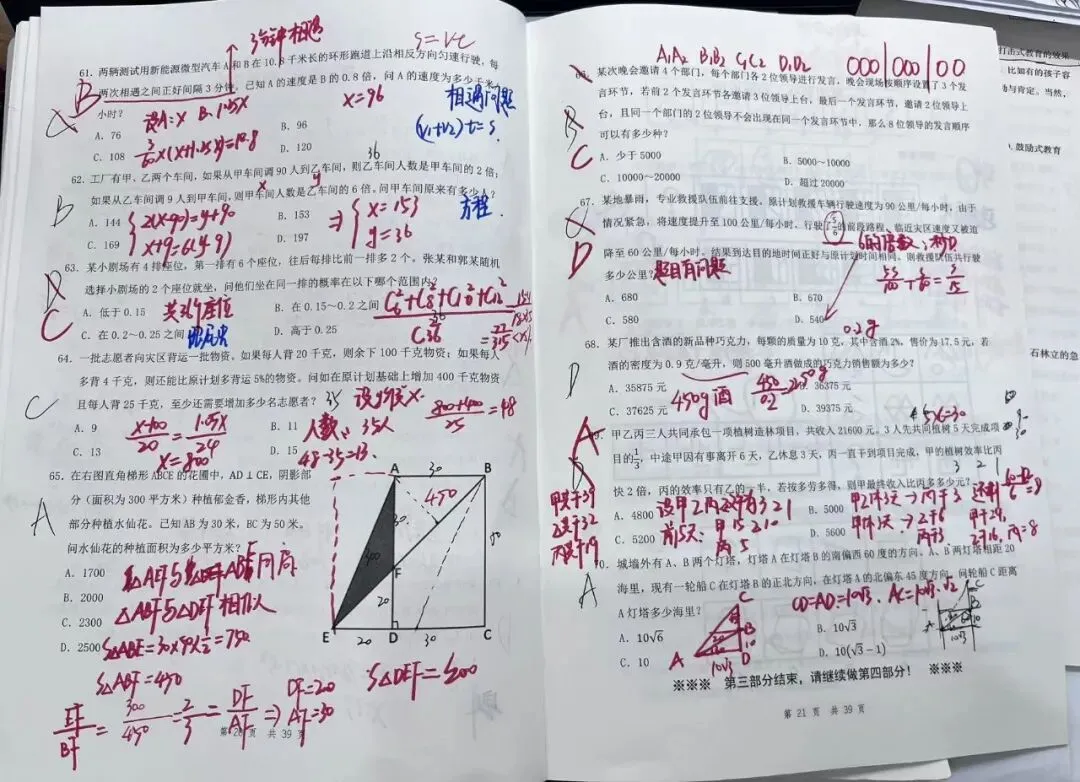 3分钟相遇
S=vt
61. 两辆测试用新能源微型汽车A和B在10.8千米长的环形跑道上沿相反方向匀速行驶，每
两次相遇之间正好间隔3分钟，已知A的速度是B的0.8倍，问A的速度为多少千米/
小时？
B
设A:X B:1.25X
X=96
相遇问题
A. 76
B. 96
(V1+V2)t=S
C. 108
D. 120
3/60×(X+1.25X)=10.8
36
62. 工厂有甲、乙两个车间，如果从甲车间调90人到乙车间，则乙车间人数是甲车间的2倍；
如果从乙车间调9人到甲车间，则甲车间人数是乙车间的6倍。问甲车间原来有多少人？
X
y
方程
B
A. 144
2(X-90)=y+90
B. 153
X=153
C. 169
X+9=6(y-9)
D. 197
y=36
63. 某小剧场有4排座位，第一排有6个座位，往后每排比前一排多2个。张某和郭某随机
选择小剧场的2个座位就坐，问他们坐在同一排的概率在以下哪个范围内？
C
A. 低于0.15
共36个座位
B. 在0.15～0.2之间
C. 在0.2～0.25之间
D. 高于0.25
64. 一批志愿者向灾区背运一批物资，如果每人背20千克，则余下100千克物资；如果每人
多背4千克，则还能比原计划多背运5%的物资。问如在原计划基础上增加400千克物资
且每人背25千克，至少还需要增加多少名志愿者？
35
C
A. 9
X+100/20=1.05X/24
B. 11
人数：35人
800+400/25=48
C. 13
X=800
D. 15
48-35=13.
65. 在右图直角梯形ABCE的花圃中，AD⊥CE，阴影部
分（面积为300平方米）种植郁金香，梯形内其他
部分种植水仙花。已知AB为30米，BC为50米。
问水仙花的种植面积为多少平方米？
A
A. 1700
B. 2000
△ABF与△DEF相似
C. 2300
D. 2500
S△ABE=30×50×1/2=750
S△ABF=450
S△DEF=200
EF/BF=300/450=2/3=DF/AF⇒DF=20
AF=30
A 30 B
450
30
50
300
F
20
E 20 D 30 C
共 39 页
A1A2 B1B2 C1C2 D1D2
000|000|00
某次晚会邀请4个部门，每个部门各2位领导进行发言，晚会现场按顺序设置了3个发
言环节，若前2个发言环节各邀请3位领导上台，最后一个发言环节，邀请2位领导上
台，且同一个部门的2位领导不会出现在同一个发言环节中，那么8位领导的发言顺序
可以有多少种？
B
C
A. 少于5000
B. 5000～10000
C. 10000～20000
D. 超过20000
67. 某地暴雨，专业救援队伍前往支援。原计划救援车辆行驶速度为90公里/每小时，由于
情况紧急，将速度提升至100公里/每小时，行驶了5/6的前段路程，临近灾区速度又被迫
降至60公里/每小时，结果到达目的地时间正好与原计划时间相同。则救援队伍共行驶
多少公里？
D
题目有问题
6的倍数：秒D
A. 680
B. 670
C. 580
D. 540
0.2g
68. 某厂推出含酒的新品种巧克力，每颗的质量为10克，其中含酒2%，售价为17.5元，若
酒的密度为0.9克/毫升，则500毫升酒做成的巧克力销售额为多少？
D
A. 35875元
B. 36375元
C. 37625元
D. 39375元
450g酒
450/0.2=2250
45X=30
甲乙丙三人共同承包一项植树造林项目，共收入21600元。3人先共同植树5天完成项
目的1/3，中途甲因有事离开6天，乙休息3天，丙一直干到项目完成，甲的植树效率比丙
快2倍，丙的效率只有乙的一半，若按多劳多得，则甲最终收入比丙多多少元？
A
3 2 1
甲共干39
乙共干32
丙共干19
A. 4800
B. 5000
C. 5200
D. 5600
70. 城墙外有A、B两个灯塔，灯塔A在灯塔B的南偏西60度的方向。A、B两灯塔相距20
海里，现有一轮船C在灯塔B的正北方向，在灯塔A的北偏东45度方向，问轮船C距离
A灯塔多少海里？
A
CD=AD=10√3. AC=10√3·√2
A. 10√6
B. 10√3
C. 10
D. 10(√3-1)
A
B
C
D
10√3
※※※ 第三部分结束，请继续做第四部分！ ※※※
第 21 页 共 39 页
打击式教育的效果
比如有的孩子容
与肯定。当然，
鼓励式教育
石林立的急